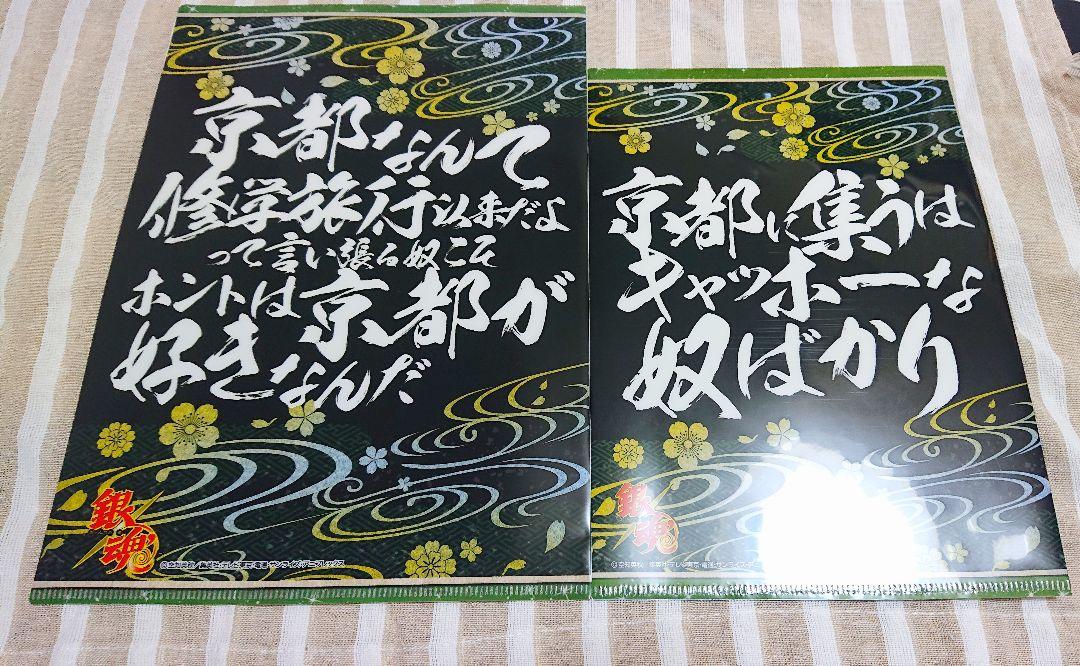 京都なんて
修学旅行以来だよ
って言い張る奴こそ
ホントは京都が
好きなんだ
銀魂
©空知英秋/集英社・テレビ東京・電通・サンライズ・アニプレックス
京都に集うは
キャッホーな
奴ばかり
銀魂
©空知英秋/集英社・テレビ東京・電通・サンライズ・ア